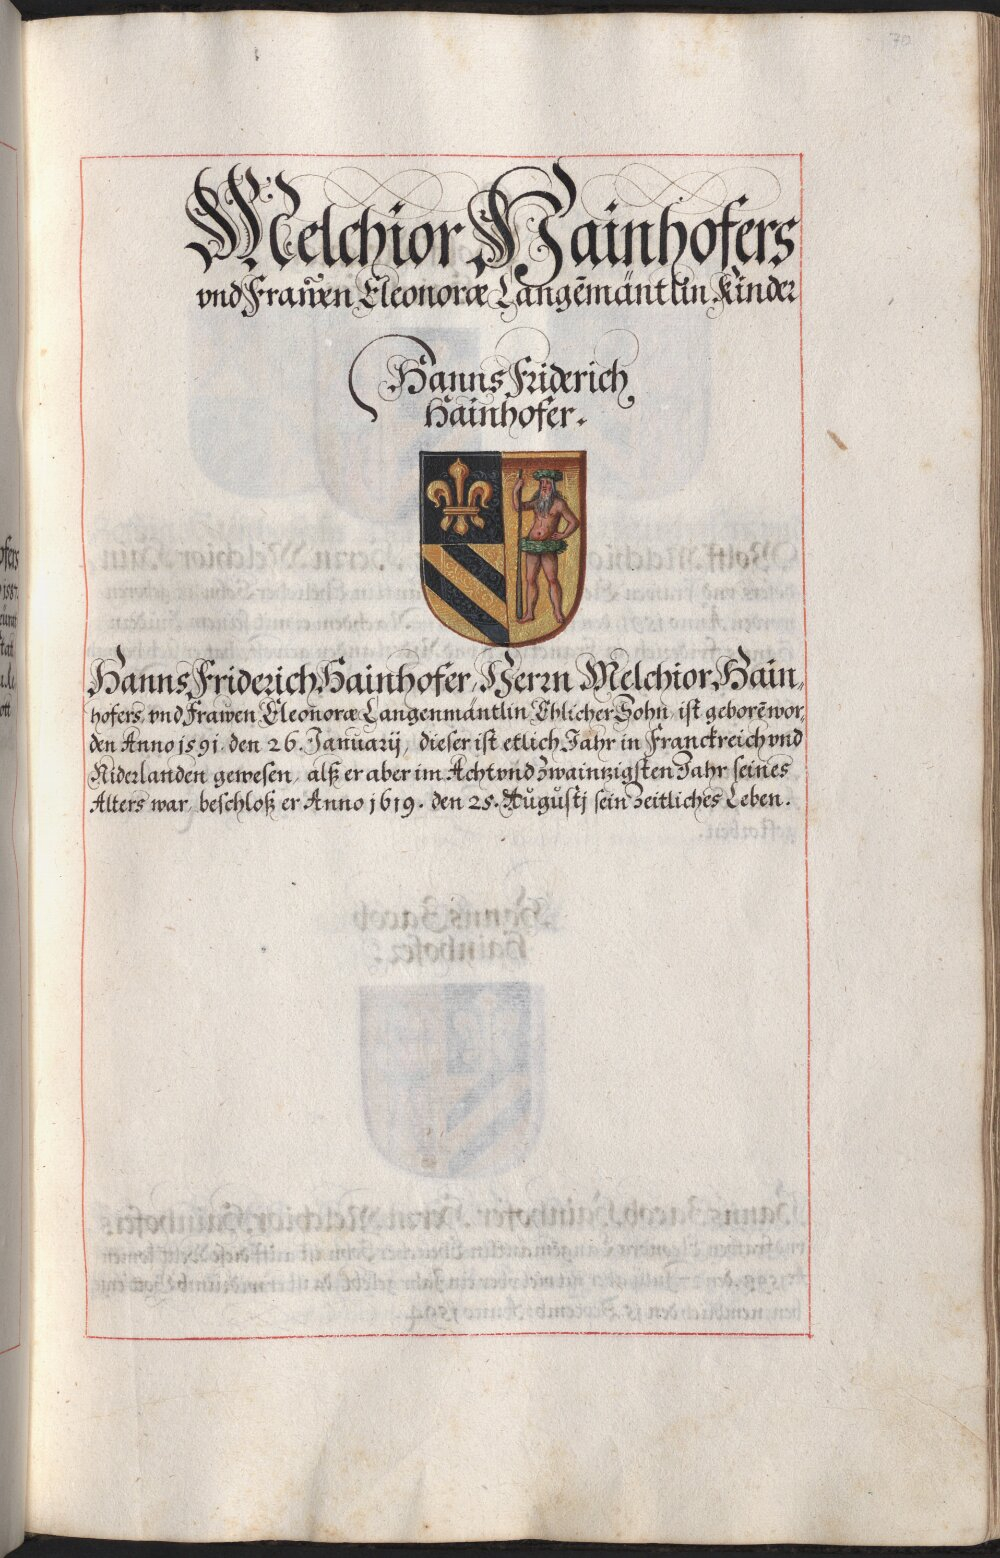 70
Melchior Hainhofers
vnd Frawen Eleonoræ Langēmäntlin Kinder
Hanns Friderich
Hainhofer.
Hanns Friderich Hainhofer, Herrn Melchior Hain,
hofers, vnd Frawen Eleonoræ Langenmäntlin Ehlicher Sohn, ist geborē wor,
den Anno 1591. den 26. Januarij, dieser ist etlich Jahr in Franckreich vnd
Niderlanden gewesen, alß er aber im Acht vnd Zwaintzigsten Jahr seines
Alters war, beschloß er Anno 1619. den 25. Augustj sein zeitliches Leben.